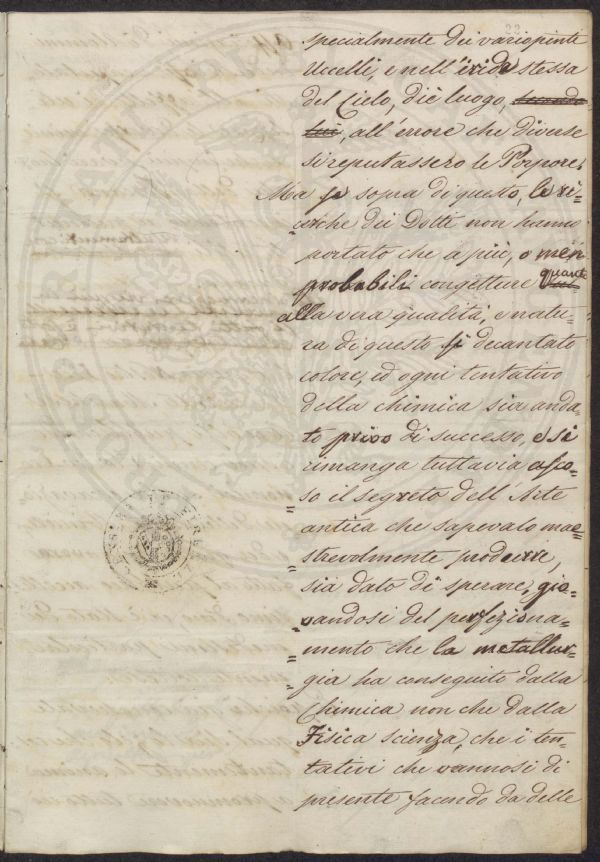 23
specialmente dei variopinti
Uccelli, e nell'iride stessa
del Cielo, diè luogo, secondo
lui, all'errore che diverse
si reputassero le Porpore.
Ma se sopra di questo, le ri=
=cerche dei Dotti non hanno
portato che a più, o men
probabili congetture quanto
alla vera qualità, e natu=
ra di questo sì decantato
colore, ed ogni tentativo
della chimica sia anda=
to privo di successo, e si
rimanga tuttavia asco=
so il segreto dell'Arte
antica che sapevalo mae=
=strevolmente produrre,
sia dato di sperare, gio=
=vandosi del perfeziona=
=mento che la metallur=
=gia ha conseguito dalla
Chimica non che dalla
Fisica scienza, che i ten=
=tativi che vannosi di
presente facendo da delle